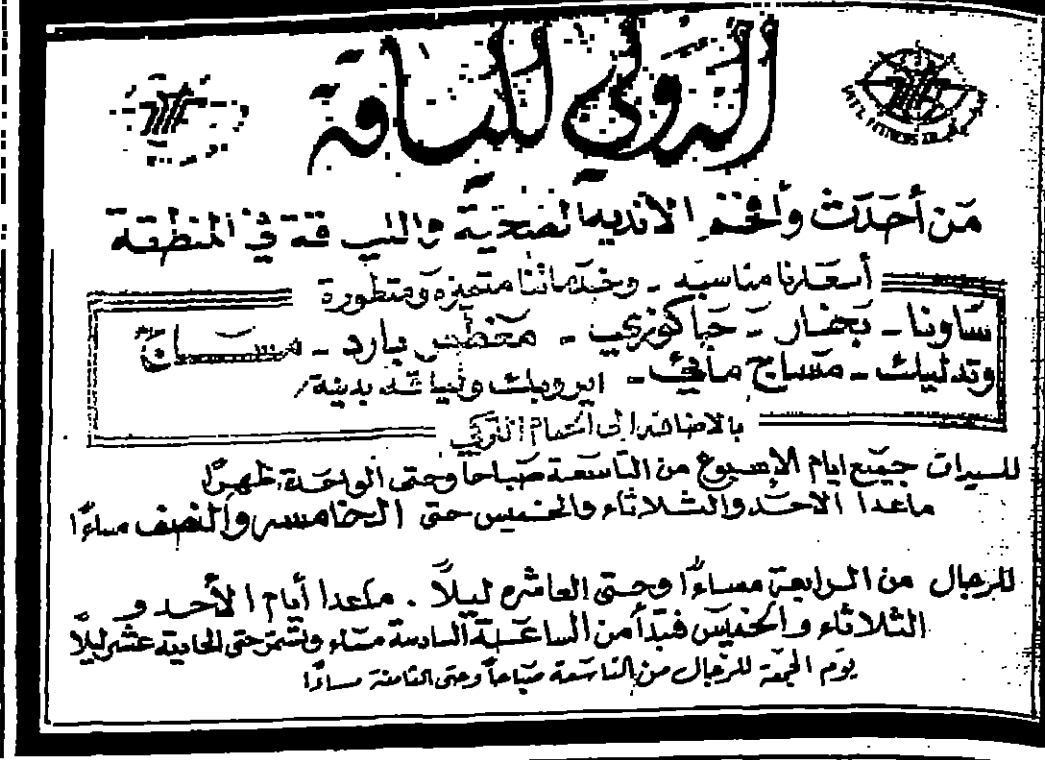 الدولي للياقة
INT'L FITNESS
من أحدث وأفخم الأندية الصحية والليـاقة في المنطقة
أسعارنا مناسبة - وخدماتنا متميزة ومتطورة
ساونا - بخار - جاكوزي - مغطس بارد - مساج
وتدليك - مساج مائي - ايروبيك ولياقة بدنية
بالاضافة إلى
للسيدات جميع ايام الإسبوع من التاسعة صباحا وحتى الواحدة ظهرًا
ماعدا الاحد والثلاثاء والخميس حتى الخامسة والنصف مساءًا
للرجال من الرابعة مساءًا وحتى العاشره ليلًا . ماعدا أيام الأحد و
الثلاثاء والخميس فتبدأ من الساعة السادسة مساء وتستمر حتى الحادية عشر ليلًا
يوم الجمعة للرجال من التاسعة صباحاً وحتى الثامنة مساءًا